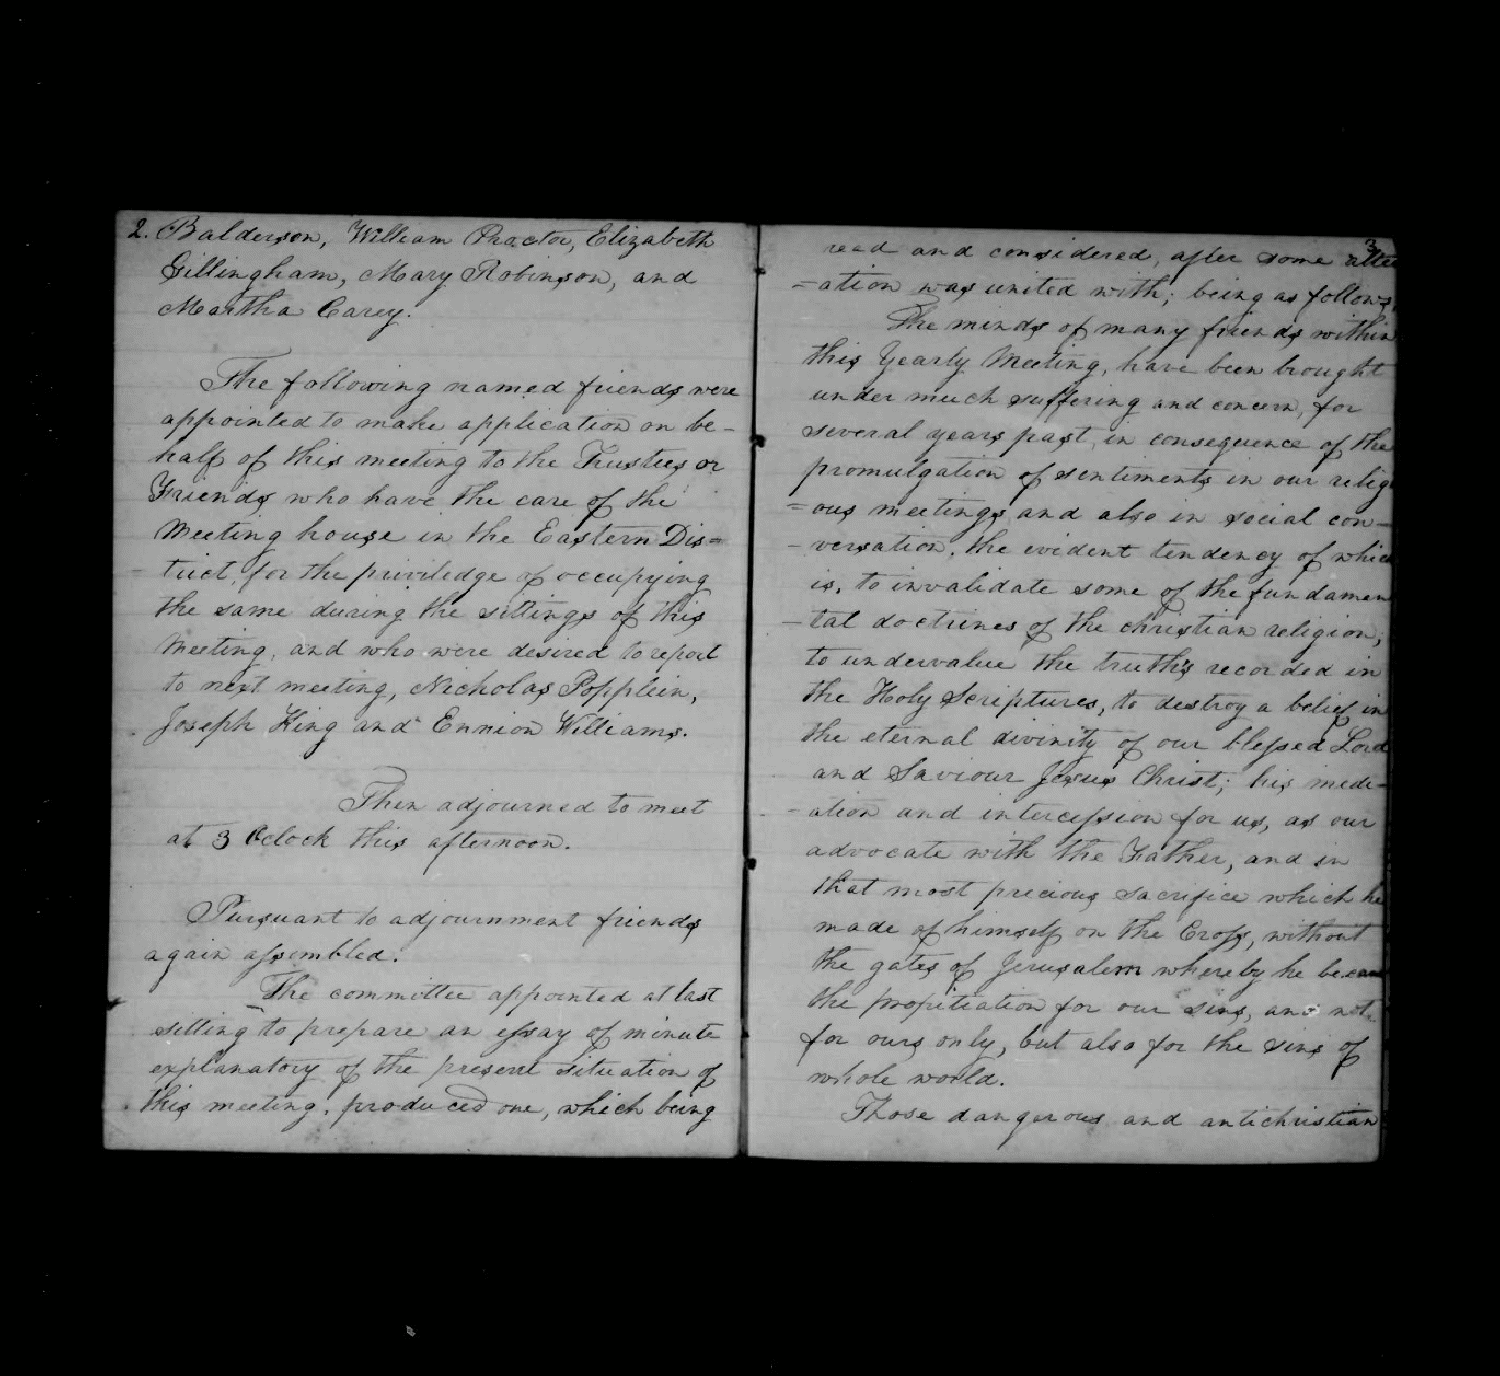 2. Balderson, William Proctor, Elizabeth
Gillingham, Mary Robinson, and
Martha Carey.
The following named friends were
appointed to make application on be-
half of this meeting to the Trustees or
Friends who have the care of the
Meeting house in the Eastern Dis=
trict, for the priviledge of occupying
the same during the sittings of this
Meeting, and who were desired to report
to next meeting, Nicholas Popplein,
Joseph King and Ennion Williams.
Then adjourned to meet
at 3 Oclock this afternoon.
Pursuant to adjournment friends
again assembled.
The committee appointed at last
sitting to prepare an essay of minute
explanatory of the present situation of
this meeting, produced one, which being
3
read and considered, after some alter
=ation was united with; being as follows,
The minds of many friends within
this Yearly Meeting, have been brought
under much suffering and concern, for
several years past, in consequence of the
promulgation of sentiments in our relig
=ous meetings and also in social con-
-versation, the evident tendency of which
is, to invalidate some of the fundamen
-tal doctrines of the christian religion,
to undervalue the truths recorded in
the Holy Scriptures, to destroy a belief in
the eternal divinity of our blessed Lord
and Saviour Jesus Christ; his medi-
-ation and intercession for us, as our
advocate with the Father, and in
that most precious sacrifice which he
made of himself on the Cross, without
the gates of Jerusalem whereby he became
the propitiation for our sins, and not
for ours only, but also for the sins of
whole world.
Those dangerous and antichristian